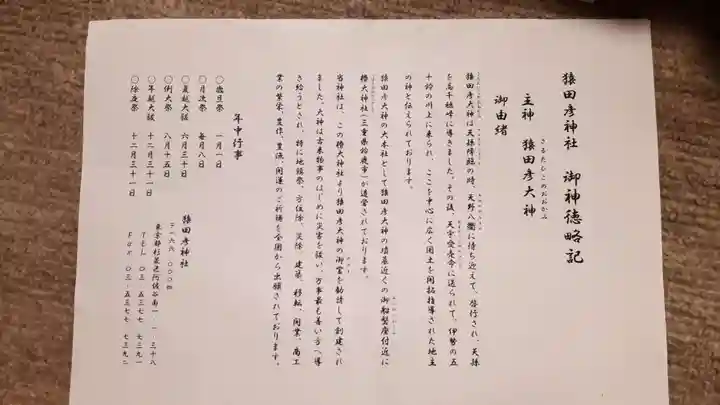 猿田彦神社　御神徳略記
主神　猿田彦大神
さるたひこのおおかみ
御由緒
猿田彦大神は天孫降臨の時、天野八衢に待ち迎えて、啓行され、天孫
を高千穂峰に導きました。その後、天宇受売命に送られて、伊勢の五
十鈴の川上に来られ、ここを中心に広く国土を開拓指導された地主
の神と伝えられております。
猿田彦大神の大本社として猿田彦大神の墳墓近くの御船磐座付近に
椿大神社(三重県鈴鹿市)が造営されております。
当神社は、この椿大神社より猿田彦大神の御霊を勧請して創建され
ました。大神は古来物事のはじめに災害を祓い、万事最も善い方へ導
き給うとされ、特に地鎮祭、方位除、災除、建築、移転、開業、商工
業の繁栄、豊作、豊漁、開運のご祈祷を全国から出願されております。
年中行事
〇歳旦祭　一月一日
〇月次祭　毎月八日
〇夏越大祓　六月三十日
〇例大祭　八月十五日
〇年越大祓　十二月三十一日
〇除夜祭　十二月三十一日
猿田彦神社
〒一六六‐〇〇〇四
東京都杉並区阿佐谷南一‐一‐三十八
Tel 〇三‐五三七七‐七三九一
Fax 〇三‐五三七七‐七三九二